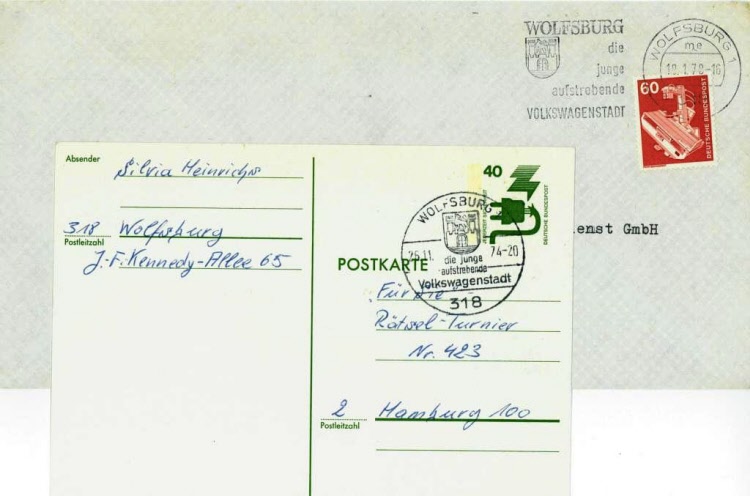 WOLFSBURG
die
junge
aufstrebende
VOLKSWAGENSTADT
WOLFSBURG 1
me
-16
60
DEUTSCHE BUNDESPOST
ienst GmbH
Absender
Silvia Heinrichs
318 Wolfsburg
Postleitzahl
J.-F. Kennedy-Allee 65
40
DEUTSCHE BUNDESPOST
WOLFSBURG
74-20
die junge
aufstrebende
Volkswagenstadt
318
POSTKARTE
Für die
Rätsel-Turnier
Nr. 423
2 Hamburg 100
Postleitzahl